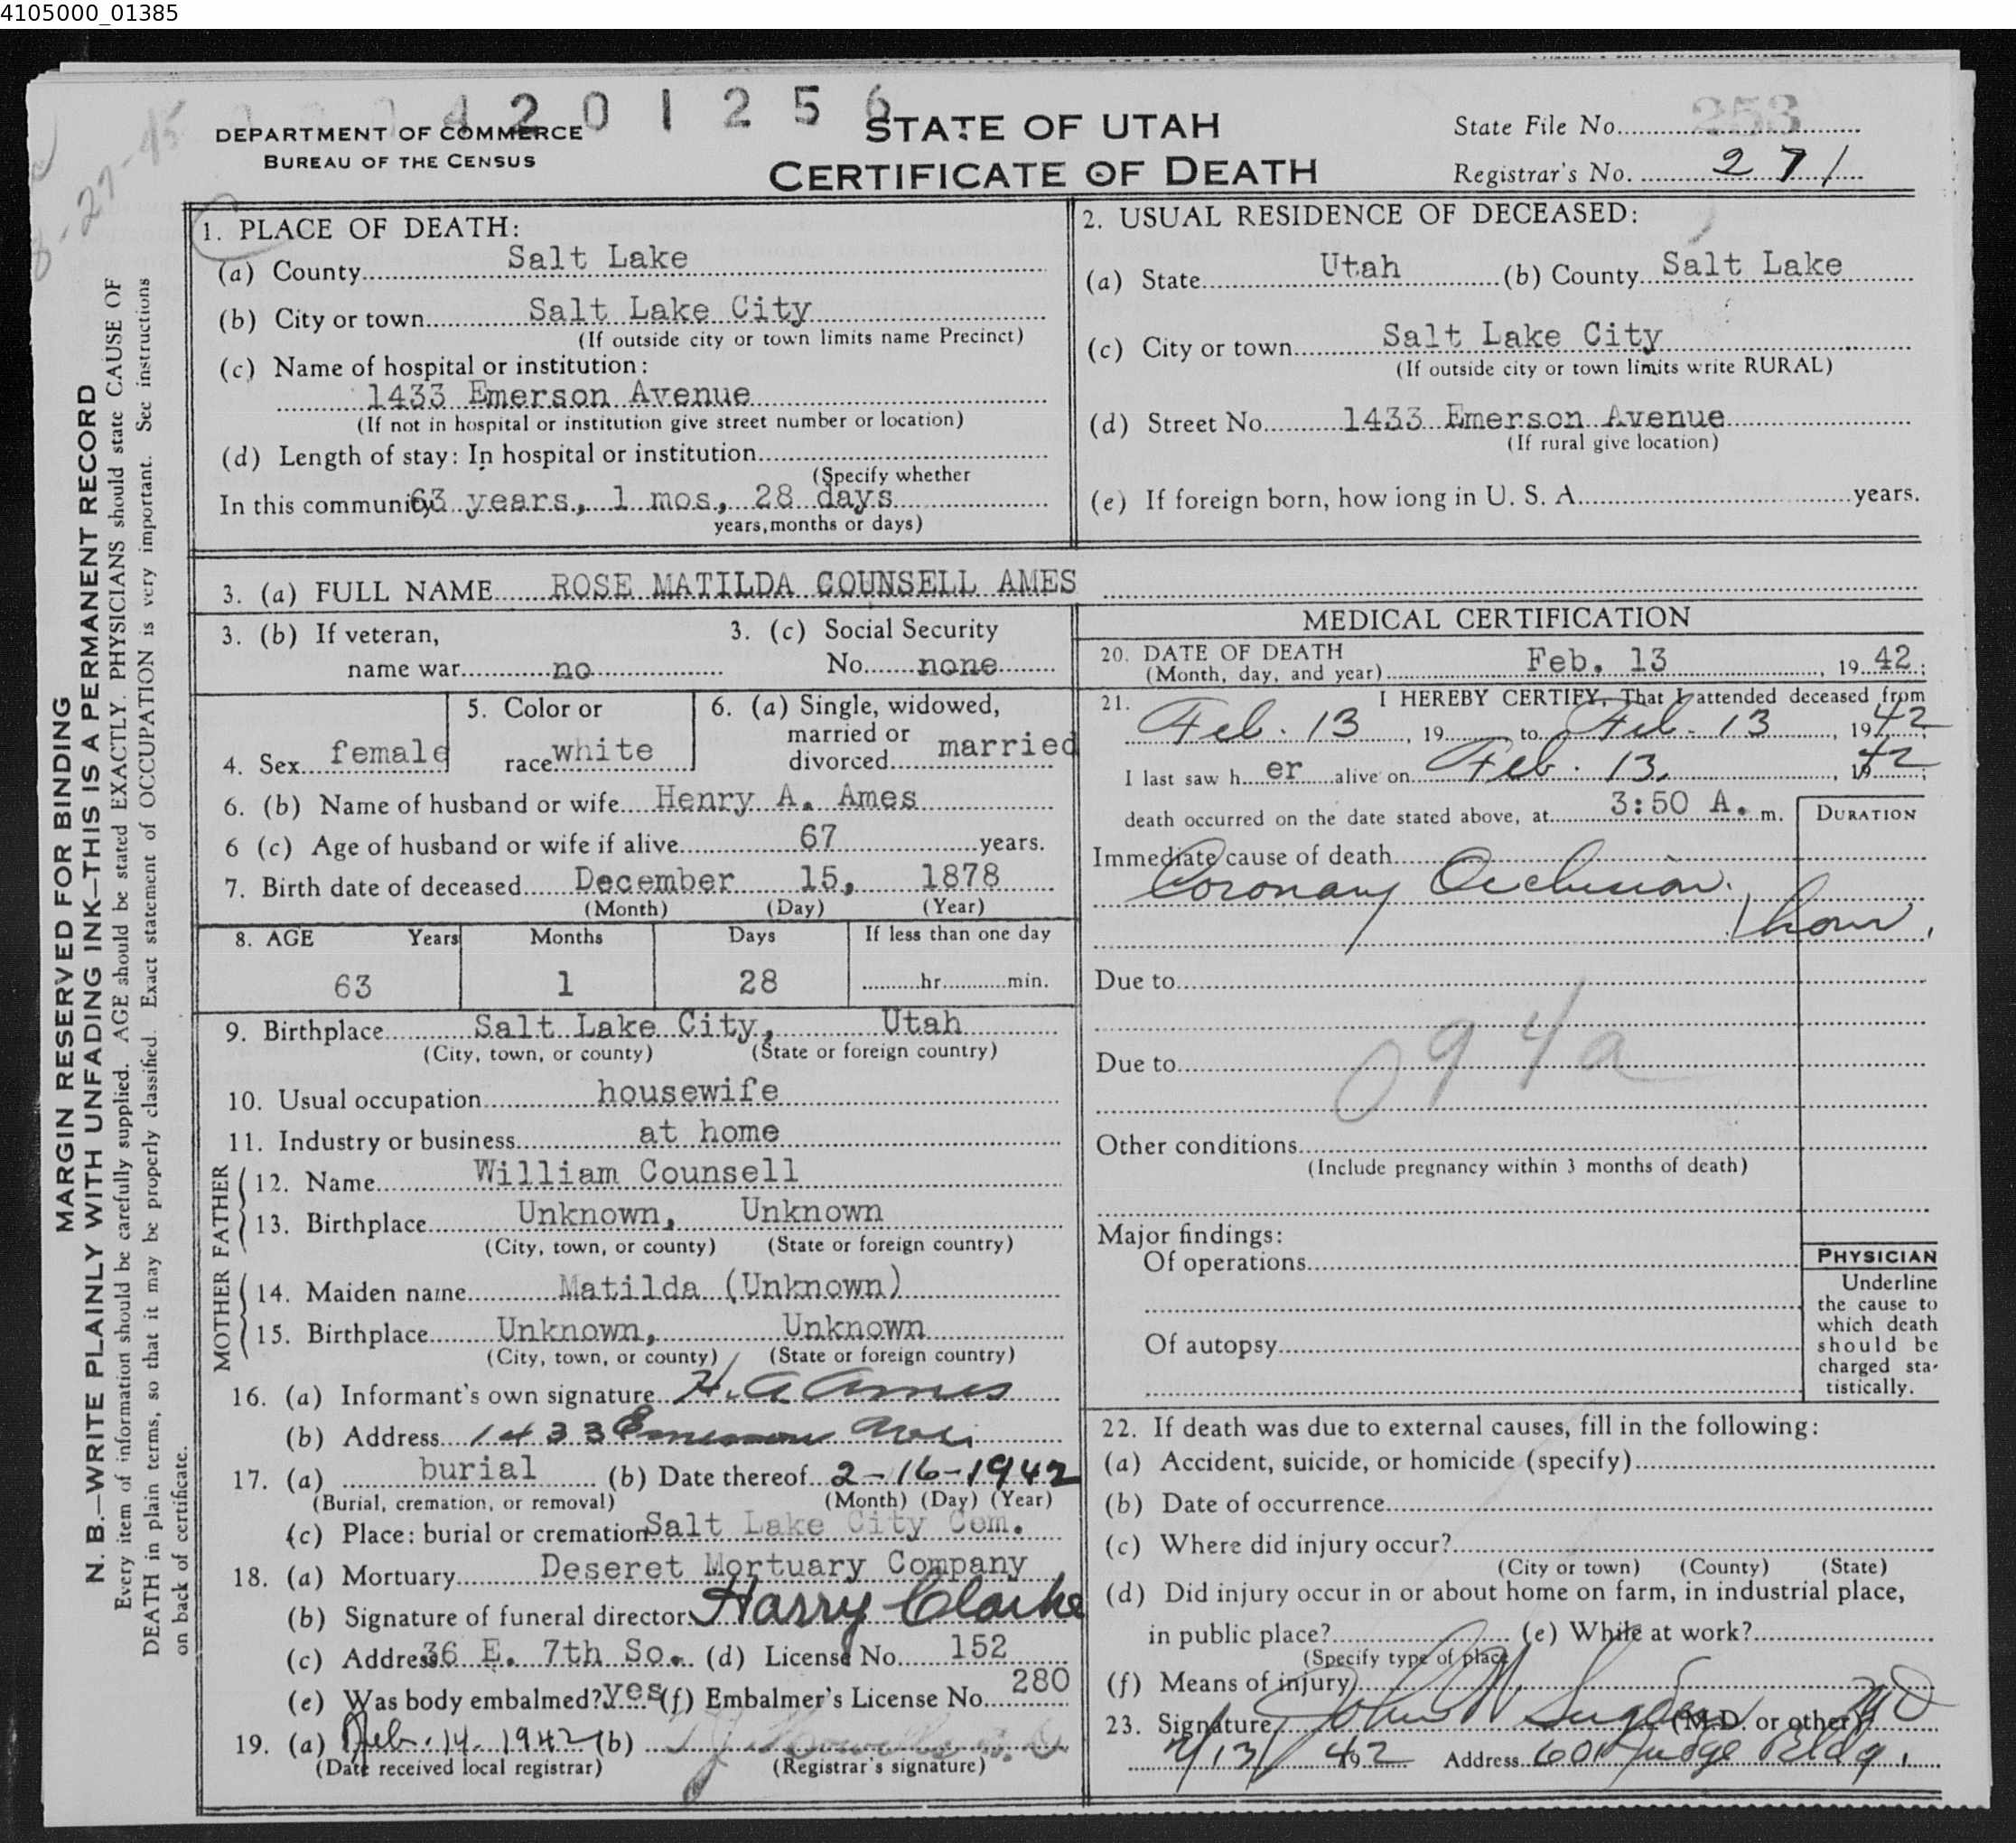 4105000_01385
4201256
DEPARTMENT OF COMMERCE
BUREAU OF THE CENSUS
STATE OF UTAH
CERTIFICATE OF DEATH
State File No. 253
Registrar's No. 271
8-27-45
MARGIN RESERVED FOR BINDING
N. B.—WRITE PLAINLY WITH UNFADING INK—THIS IS A PERMANENT RECORD
Every item of information should be carefully supplied. AGE should be stated EXACTLY. PHYSICIANS should state CAUSE OF
DEATH in plain terms, so that it may be properly classified. Exact statement of OCCUPATION is very important. See instructions
on back of certificate.
1. PLACE OF DEATH:
(a) County Salt Lake
(b) City or town Salt Lake City
(If outside city or town limits name Precinct)
(c) Name of hospital or institution:
1433 Emerson Avenue
(If not in hospital or institution give street number or location)
(d) Length of stay: In hospital or institution
(Specify whether
In this community 63 years, 1 mos, 28 days
years, months or days)
2. USUAL RESIDENCE OF DECEASED:
(a) State Utah (b) County Salt Lake
(c) City or town Salt Lake City
(If outside city or town limits write RURAL)
(d) Street No. 1433 Emerson Avenue
(If rural give location)
(e) If foreign born, how iong in U. S. A. years.
3. (a) FULL NAME ROSE MATILDA COUNSELL AMES
3. (b) If veteran,
name war no
3. (c) Social Security
No. none
4. Sex female
5. Color or
race white
6. (a) Single, widowed,
married or
divorced married
6. (b) Name of husband or wife Henry A. Ames
6 (c) Age of husband or wife if alive 67 years.
7. Birth date of deceased December 15, 1878
(Month) (Day) (Year)
8. AGE Years Months Days If less than one day
63 1 28 hr. min.
9. Birthplace Salt Lake City, Utah
(City, town, or county) (State or foreign country)
10. Usual occupation housewife
11. Industry or business at home
FATHER
12. Name William Counsell
13. Birthplace Unknown, Unknown
(City, town, or county) (State or foreign country)
MOTHER
14. Maiden name Matilda (Unknown)
15. Birthplace Unknown, Unknown
(City, town, or county) (State or foreign country)
16. (a) Informant's own signature H. A Ames
(b) Address 1433 Emerson Ave.
17. (a) burial (b) Date thereof 2-16-1942
(Burial, cremation, or removal) (Month) (Day) (Year)
(c) Place: burial or cremation Salt Lake City Cem.
18. (a) Mortuary Deseret Mortuary Company
(b) Signature of funeral director Harry Clarke
(c) Address 36 E. 7th So. (d) License No. 152
(e) Was body embalmed? yes (f) Embalmer's License No. 280
19. (a) Feb. 14. 1942 (b)
(Date received local registrar) (Registrar's signature)
MEDICAL CERTIFICATION
20. DATE OF DEATH
(Month, day, and year) Feb. 13, 1942;
21. I HEREBY CERTIFY, That I attended deceased from
Feb. 13, 19 to Feb. 13, 1942;
I last saw her alive on Feb. 13, 1942;
death occurred on the date stated above, at 3:50 A. m.
DURATION
Immediate cause of death
Coronary Occlusion. 1 hour,
Due to
094a
Due to
Other conditions
(Include pregnancy within 3 months of death)
Major findings:
Of operations
Of autopsy
PHYSICIAN
Underline
the cause to
which death
should be
charged sta-
tistically.
22. If death was due to external causes, fill in the following:
(a) Accident, suicide, or homicide (specify)
(b) Date of occurrence
(c) Where did injury occur?
(City or town) (County) (State)
(d) Did injury occur in or about home on farm, in industrial place,
in public place? (e) While at work?
(Specify type of place
(f) Means of injury
23. Signature John W. Sugden MD (M.D. or other)
2/13/ 1942 Address 601 Judge Bldg.